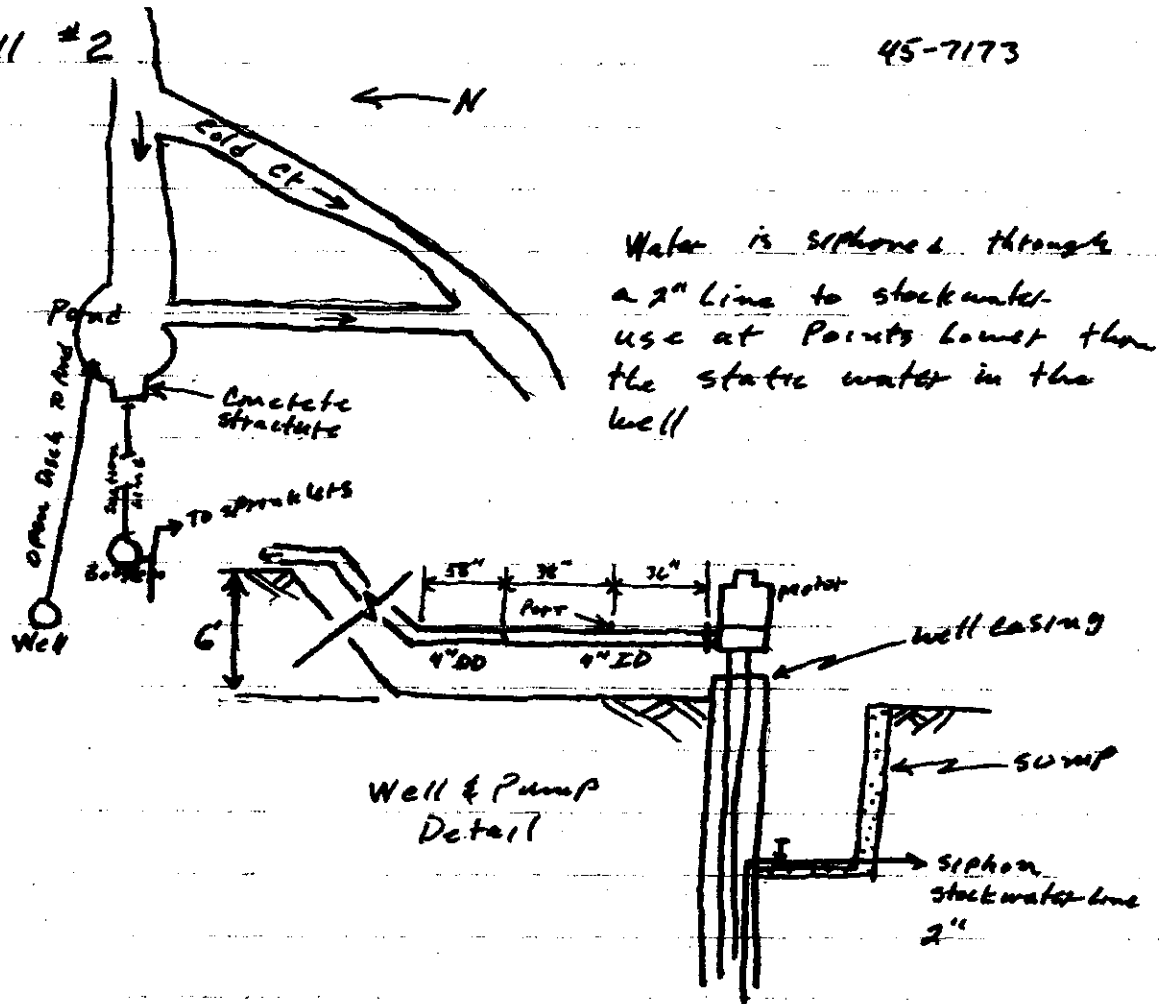 ll #2
45-7173
N
Cold Ck
Water is siphoned through
a 2" Line to stockwater
use at Points Lower than
the static water in the
well
Pond
Concrete
structure
Open Disch to Pond
Suction
Line
To sprinklers
Booster
Well
6'
58"
36"
36"
motor
Port
4" OD
4" ID
well casing
sump
Well & Pump
Detail
siphon
stockwater line
2"